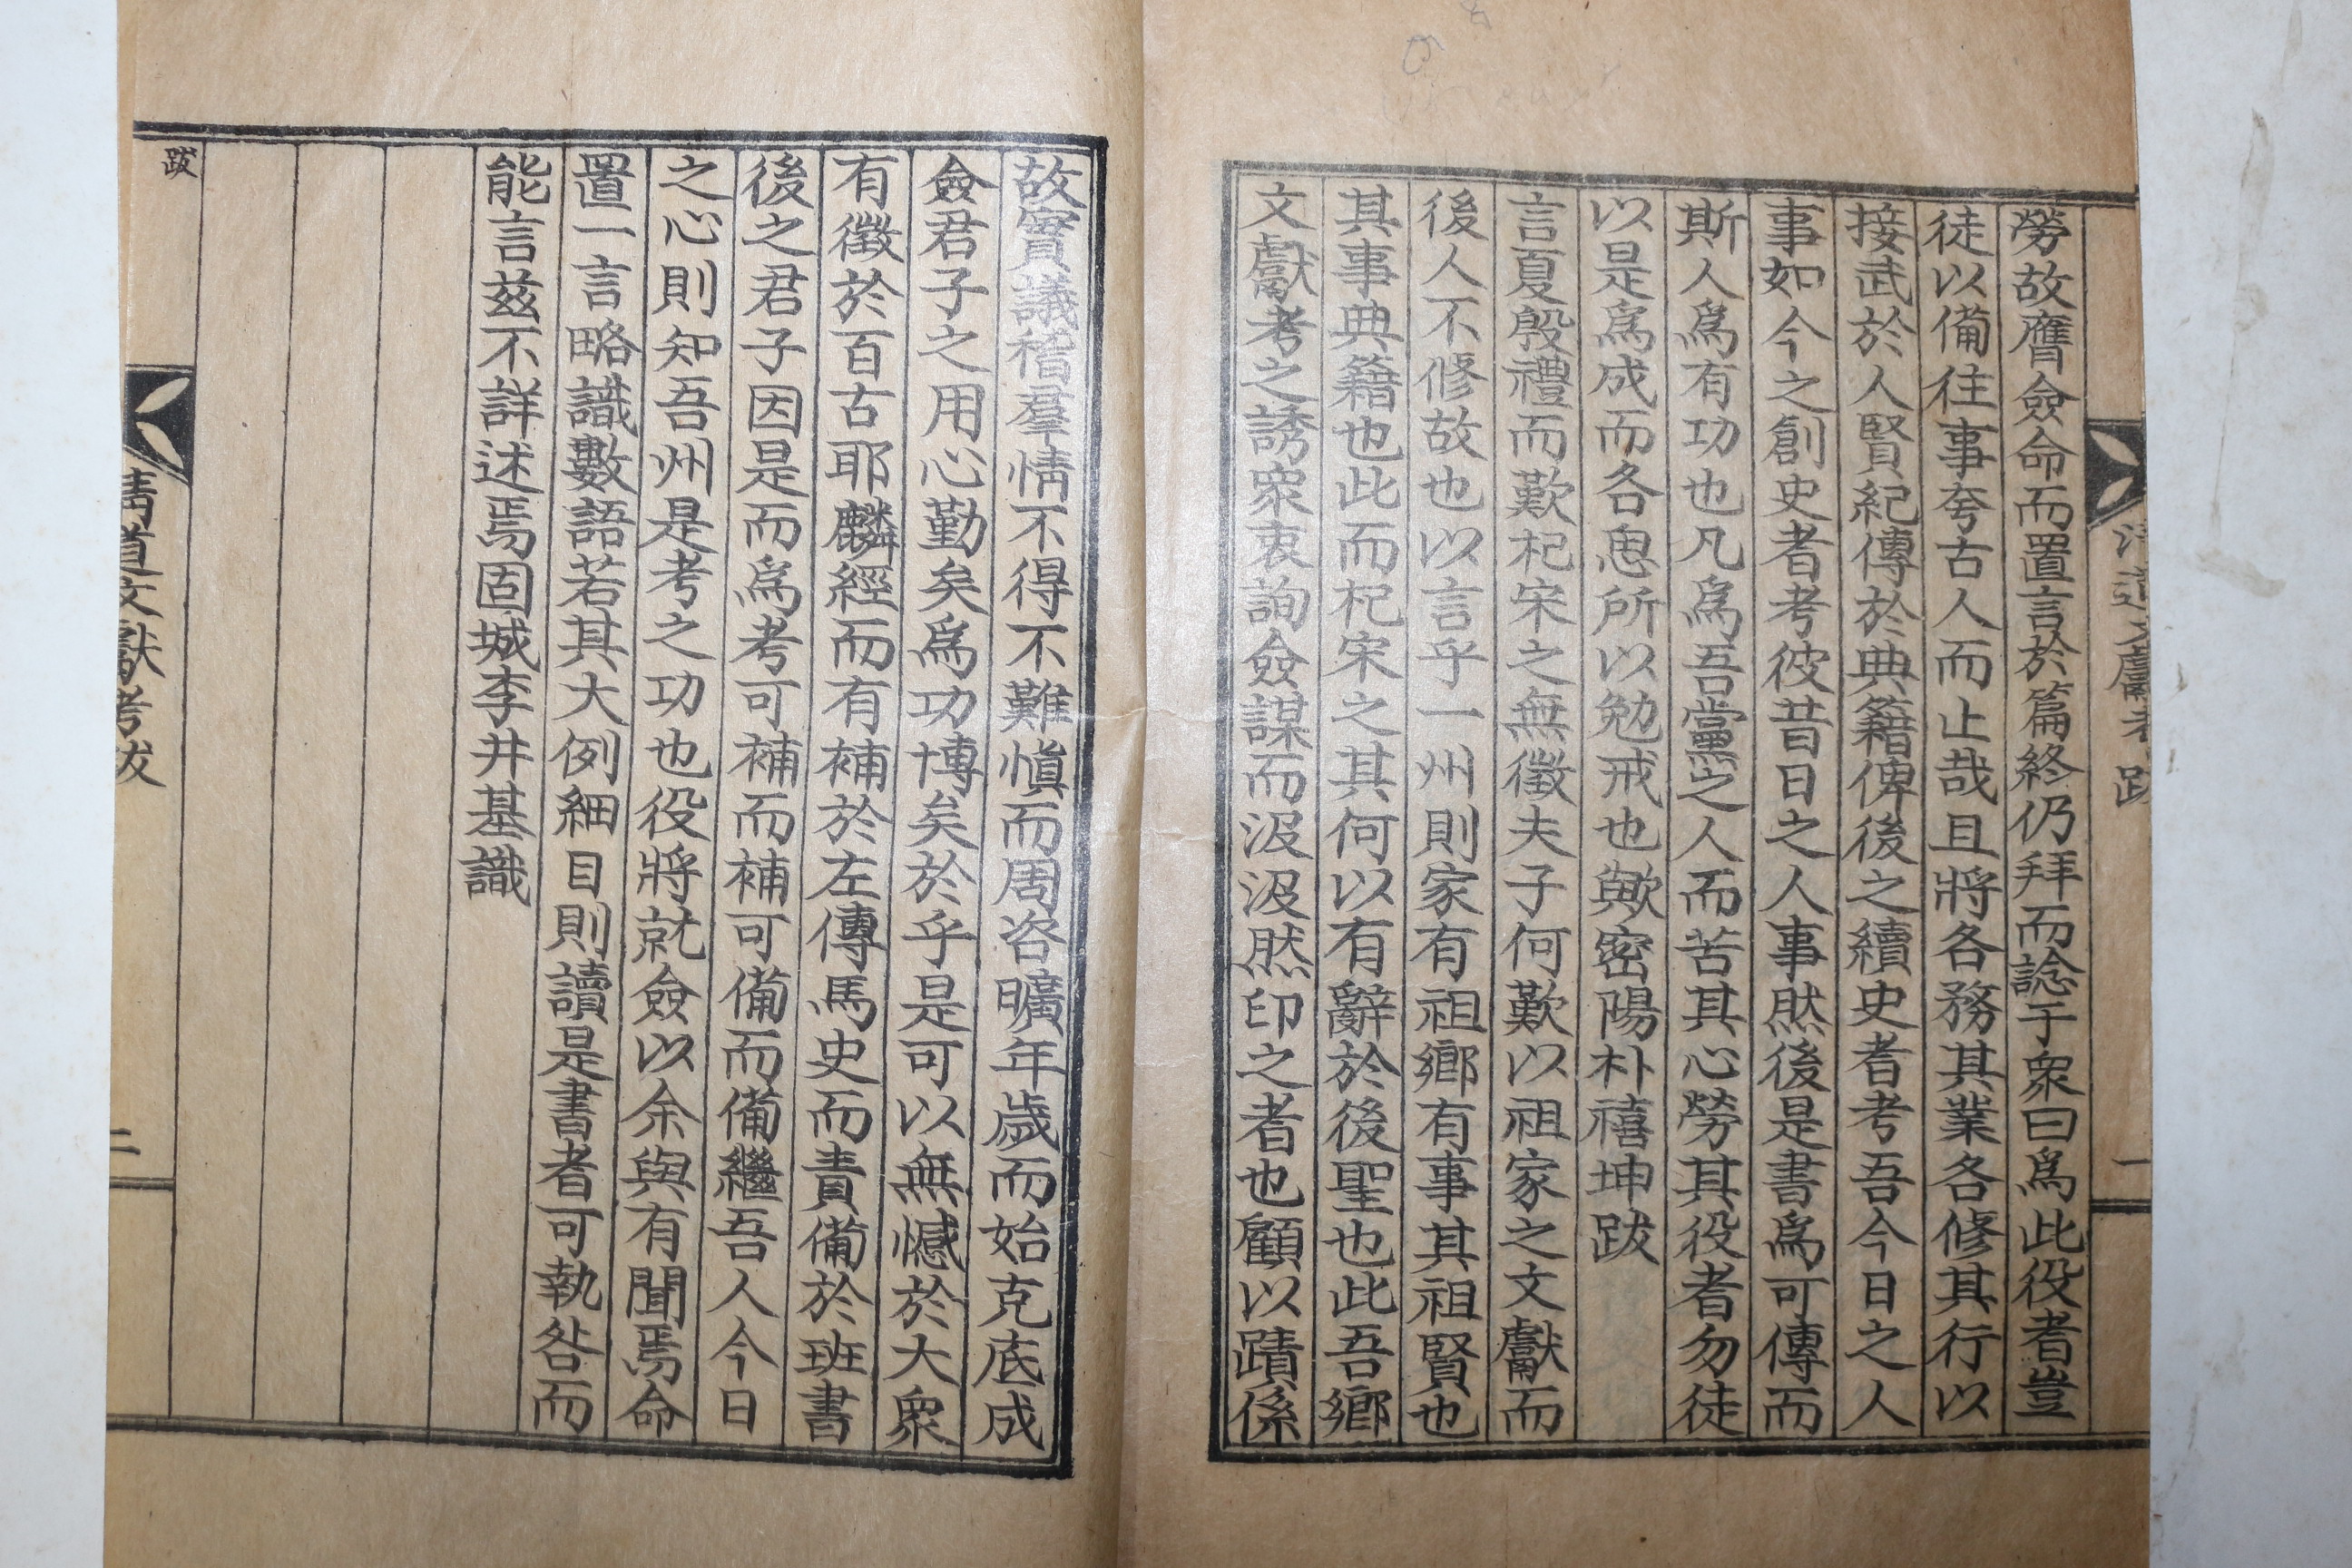 清道文獻考跋
一
勞故膺僉命而置言於篇終仍拜而諗于衆曰爲此役者豈
徒以備往事夸古人而止哉且將各務其業各修其行以
接武於人賢紀傳於典籍俾後之續史者考吾今日之人
事如今之創史者考彼昔日之人事然後是書爲可傳而
斯人爲有功也凡爲吾黨之人而苦其心勞其役者勿徒
以是爲成而各思所以勉戒也歟密陽朴禧坤跋
言夏殷禮而歎杞宋之無徵夫子何歎以祖家之文獻而
後人不修故也以言乎一州則家有祖鄉有事其祖賢也
其事典籍也此而杞宋之其何以有辭於後聖也此吾鄉
文獻考之誘衆衷詢僉謀而汲汲然印之者也顧以蹟係
故實議稽羣情不得不難愼而周咨曠年歲而始克底成
僉君子之用心勤矣爲功博矣於乎是可以無憾於大衆
有徵於百古耶麟經而有補於左傳馬史而責備於班書
後之君子因是而爲考可補而補可備而備繼吾人今日
之心則知吾州是考之功也役將就僉以余與有聞焉命
置一言略識數語若其大例細目則讀是書者可執咎而
能言玆不詳述焉固城李井基識
跋
清道文獻考跋
二